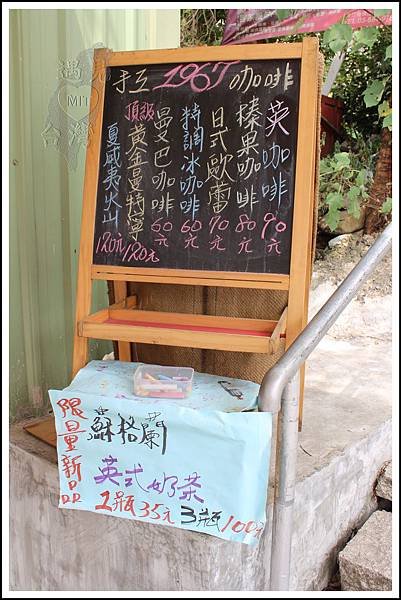 手工1967の咖啡
英咖啡90元
榛果咖啡80元
日式歐蕾70元
特調冰咖啡60元
曼巴咖啡60元
頂級黃金曼特寧120元
夏威夷火山120元
限量新品
蘇格蘭
英式奶茶
1瓶35元3瓶100元
MIT
台灣